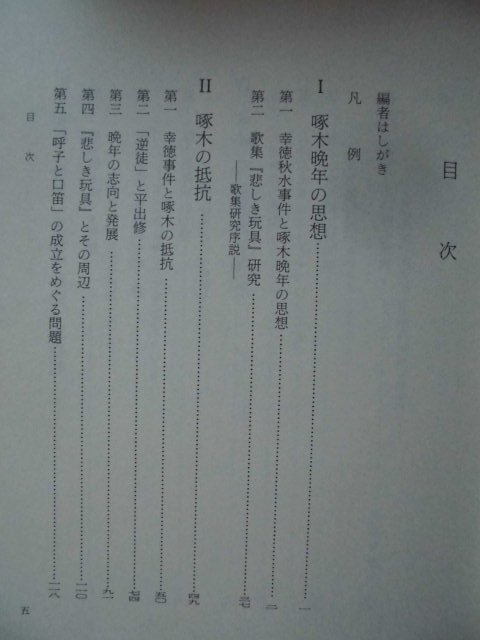 目次
編者はしがき
凡例
Ⅰ 啄木晩年の思想……一
第一 幸徳秋水事件と啄木晩年の思想……二
第二 歌集『悲しき玩具』研究……三七
――歌集研究序説――
Ⅱ 啄木の抵抗……四九
第一 幸徳事件と啄木の抵抗……五〇
第二 「逆徒」と平出修……七四
第三 晩年の志向と発展……九一
第四 『悲しき玩具』とその周辺……一一〇
第五 「呼子と口笛」の成立をめぐる問題……一二八
目次
五